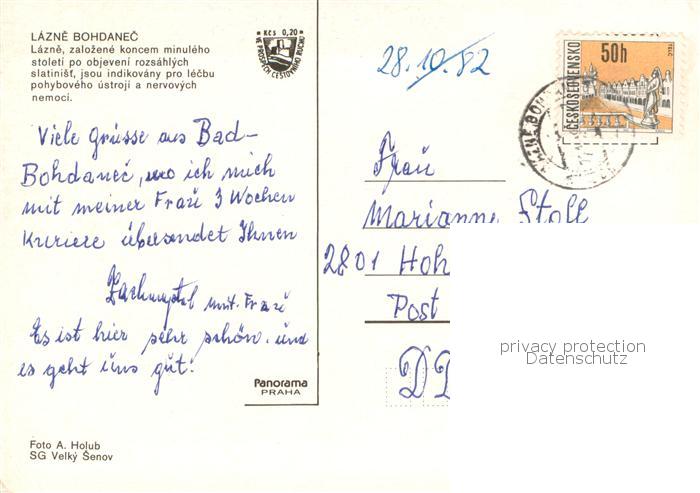 LÁZNĚ BOHDANEČ
Lázně, založené koncem minulého
století po objevení rozsáhlých
slatinišť, jsou indikovány pro léčbu
pohybového ústrojí a nervových
nemocí.
Kčs 0,20
VE PROSPĚCH CESTOVNÍHO RUCHU
28.10.82
ČESKOSLOVENSKO
50h
TELČ
Viele Grüsse aus Bad-
Bohdaneč, wo ich mich
mit meiner Fraŭ 3 Wochen
Kuriere übersendet Ihnen
mit. Fraŭ
Es ist hier sehr schön. ŭnd
es geht ŭns gŭt.
Fraŭ
Marianne Stoll
2801 Hoh
Post
DD
privacy protection
Datenschutz
Panorama
PRAHA
Foto A. Holub
SG Velký Šenov